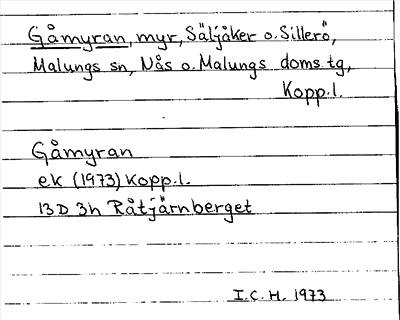 Gåmyran, myr, Säljåker o. Sillerö,
Malungs sn, Nås o. Malungs doms.tg,
Kopp.l.
Gåmyran
ek (1973) Kopp.l.
13D 3h Råtjärnberget
I.C.H. 1973